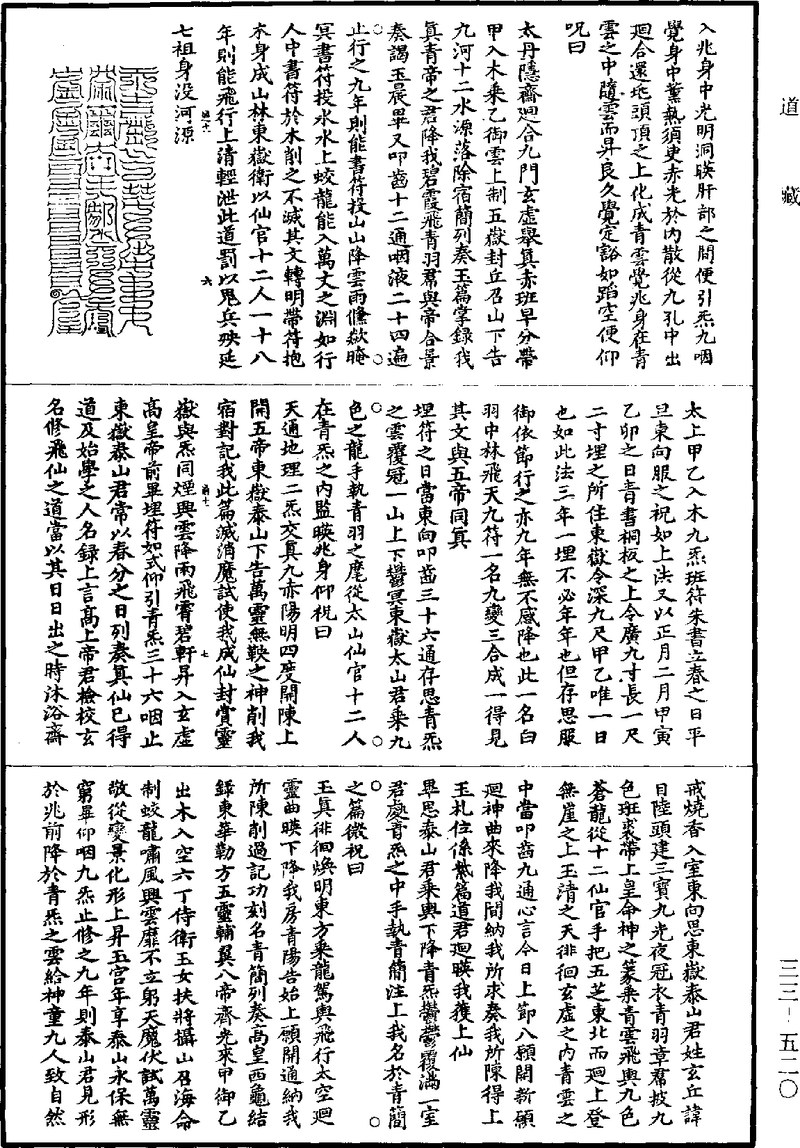 道藏
入兆身中光明洞暎肝部之間便引炁九咽
覺身中薰熱須臾赤光於內散從九孔中出
廻合還地頭頂之上化成青雲覺兆身在青
雲之中隨雲而昇良久覺定豁如蹈空便仰
呪曰
太丹隱齋廻合九門玄虛舉真赤班早分帶
甲入木乘乙御雲上制五嶽封丘召山下告
九河十二水源落除宿簡列奏玉篇掌錄我
真青帝之君降我碧霞飛青羽君與帝合景
奏謁玉晨畢又叩齒十二通咽液二十四遍
止行之九年則能書符投山山降雲雨儵欻晻
冥書符投水水上蛟龍能入萬丈之淵如行
人中書符於木削之不滅其文轉明帶符抱
木身成山林東嶽衛以仙官十二人一十八
年則能飛行上清輕泄此道罰以鬼兵殃延
七祖身没河源
太上甲乙入木九炁班符朱書立春之日平
旦東向服之祝如上法又以正月二月甲寅
乙卯之日青書桐板之上令廣九寸長一尺
二寸埋之所住東嶽令深九尺甲乙唯一日
也如此法三年一埋不必年年也但存思服
御依節行之亦九年無不感降也此一名白
羽中林飛天九符一名九變三合成一得見
其文與五帝同真
埋符之日當東向叩齒三十六通存思青炁
之雲覆冠一山上下鬱冥東嶽太山君乘九
色之龍手執青羽之麾從太山仙官十二人
在青炁之內監暎兆身仰祝曰
天通地理二炁交真九赤陽明四度開陳上
開五帝東嶽泰山下告萬靈無鞅之神削我
宿對記我此篇滅消魔試使我成仙封賞靈
嶽與炁同煙興雲降雨飛霄碧軒昇入玄虛
高皇帝前畢埋符如式仰引青炁三十六咽止
東嶽泰山君常以春分之日列奏真仙已得
道及始學之人名錄上言高上帝君檢校玄
名修飛仙之道當以其日日出之時沐浴齋
戒燒香入室東向思東嶽泰山君姓玄丘諱
目陸頭建三寶九光夜冠衣青羽章帬披九
色班裘帶上皇命神之篆乘青雲飛輿九色
蒼龍從十二仙官手把五芝東北而廻上登
無崖之上玉清之天徘徊玄虛之內青雲之
中當叩齒九通心言今日上節八願開新願
廻神曲來降我間納我所求奏我所陳得上
玉札位係紫篇道君廻暎我獲上仙
畢思泰山君乘輿下降青炁鬱鬱覆滿一室
君處青炁之中手執青簡注上我名於青簡
之篇微祝曰
玉真徘徊煥明東方乘龍駕輿飛行太空廻
靈曲暎下降我房青陽告始上願開通納我
所陳削過記功刻名青簡列奏高皇西龜結
錄東華勒方五靈輔翼八帝齊光來甲御乙
出木入空六丁侍衛玉女扶將攝山召海命
制蛟龍嘯風興雲靡不立躬天魔伏試萬靈
敬從變景化形上昇玉宮年享泰山永保無
窮畢仰咽九炁止修之九年則泰山君見形
於兆前降於青炁之雲給神童九人致自然
三三-五二〇